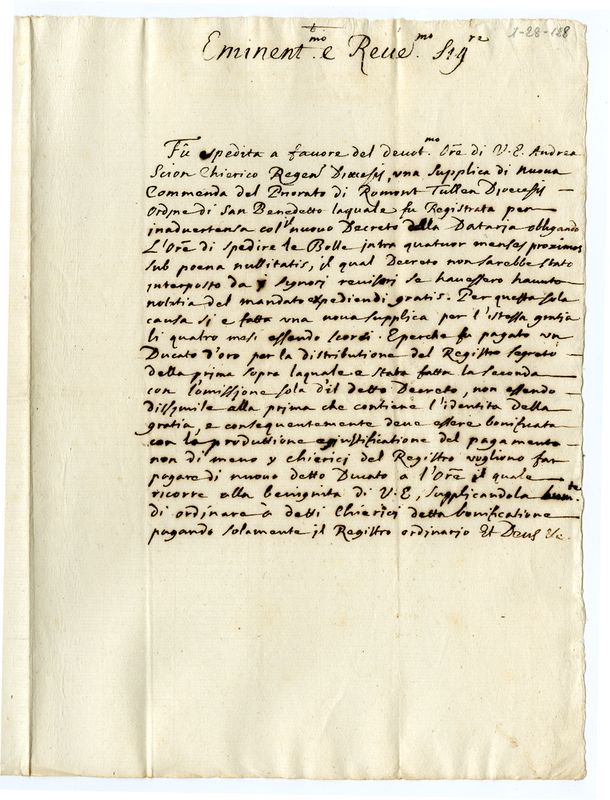 1-28-128
Eminent.mo e Reue.mo Sigre
Fù spedita a fauore del deuot.mo Ore di V.E. Andrea
Scion Chierico Regens Diocesis, vna Supplica di nuoua
Commenda del Priorato di Romont Tullen Diocesis
ordine di San Benedetto laquale fu Registrata per
inaduertensa col il nuouo Decreto della Dataria obligando
L'Ore di spedire le Bolle intra quatuor menses proximos
sub poena nullitatis, il qual Decreto non sarebbe stato
interposto da i Signori reuisori se hauessero hauuto
notitia del mandato expediendi gratis. Per questa sola
causa si e fatta vna noua supplica per l'istessa gratia
li quatro mesi essendo scorsi. Eperche fu pagato vn
Ducato d'oro per la distributione del Registro segreto
della prima sopra laquale e stata fatta la seconda
con l'omissione sola d'il detto Decreto, non essendo
dissimile alla prima che contiene l'identita della
gratia, e consequentemente deue essere bonificata
con la produttione e giustificatione del pagamento
non di meno y chierici del Registro vogliono far
pagare di nuouo detto Ducato a l'Ore il quale
ricorre alla benignita di V.E, supplicandola hum.te
di ordinare à detti Chierici detta bonificatione
pagando solamente il Registro ordinario Et Deus &c.